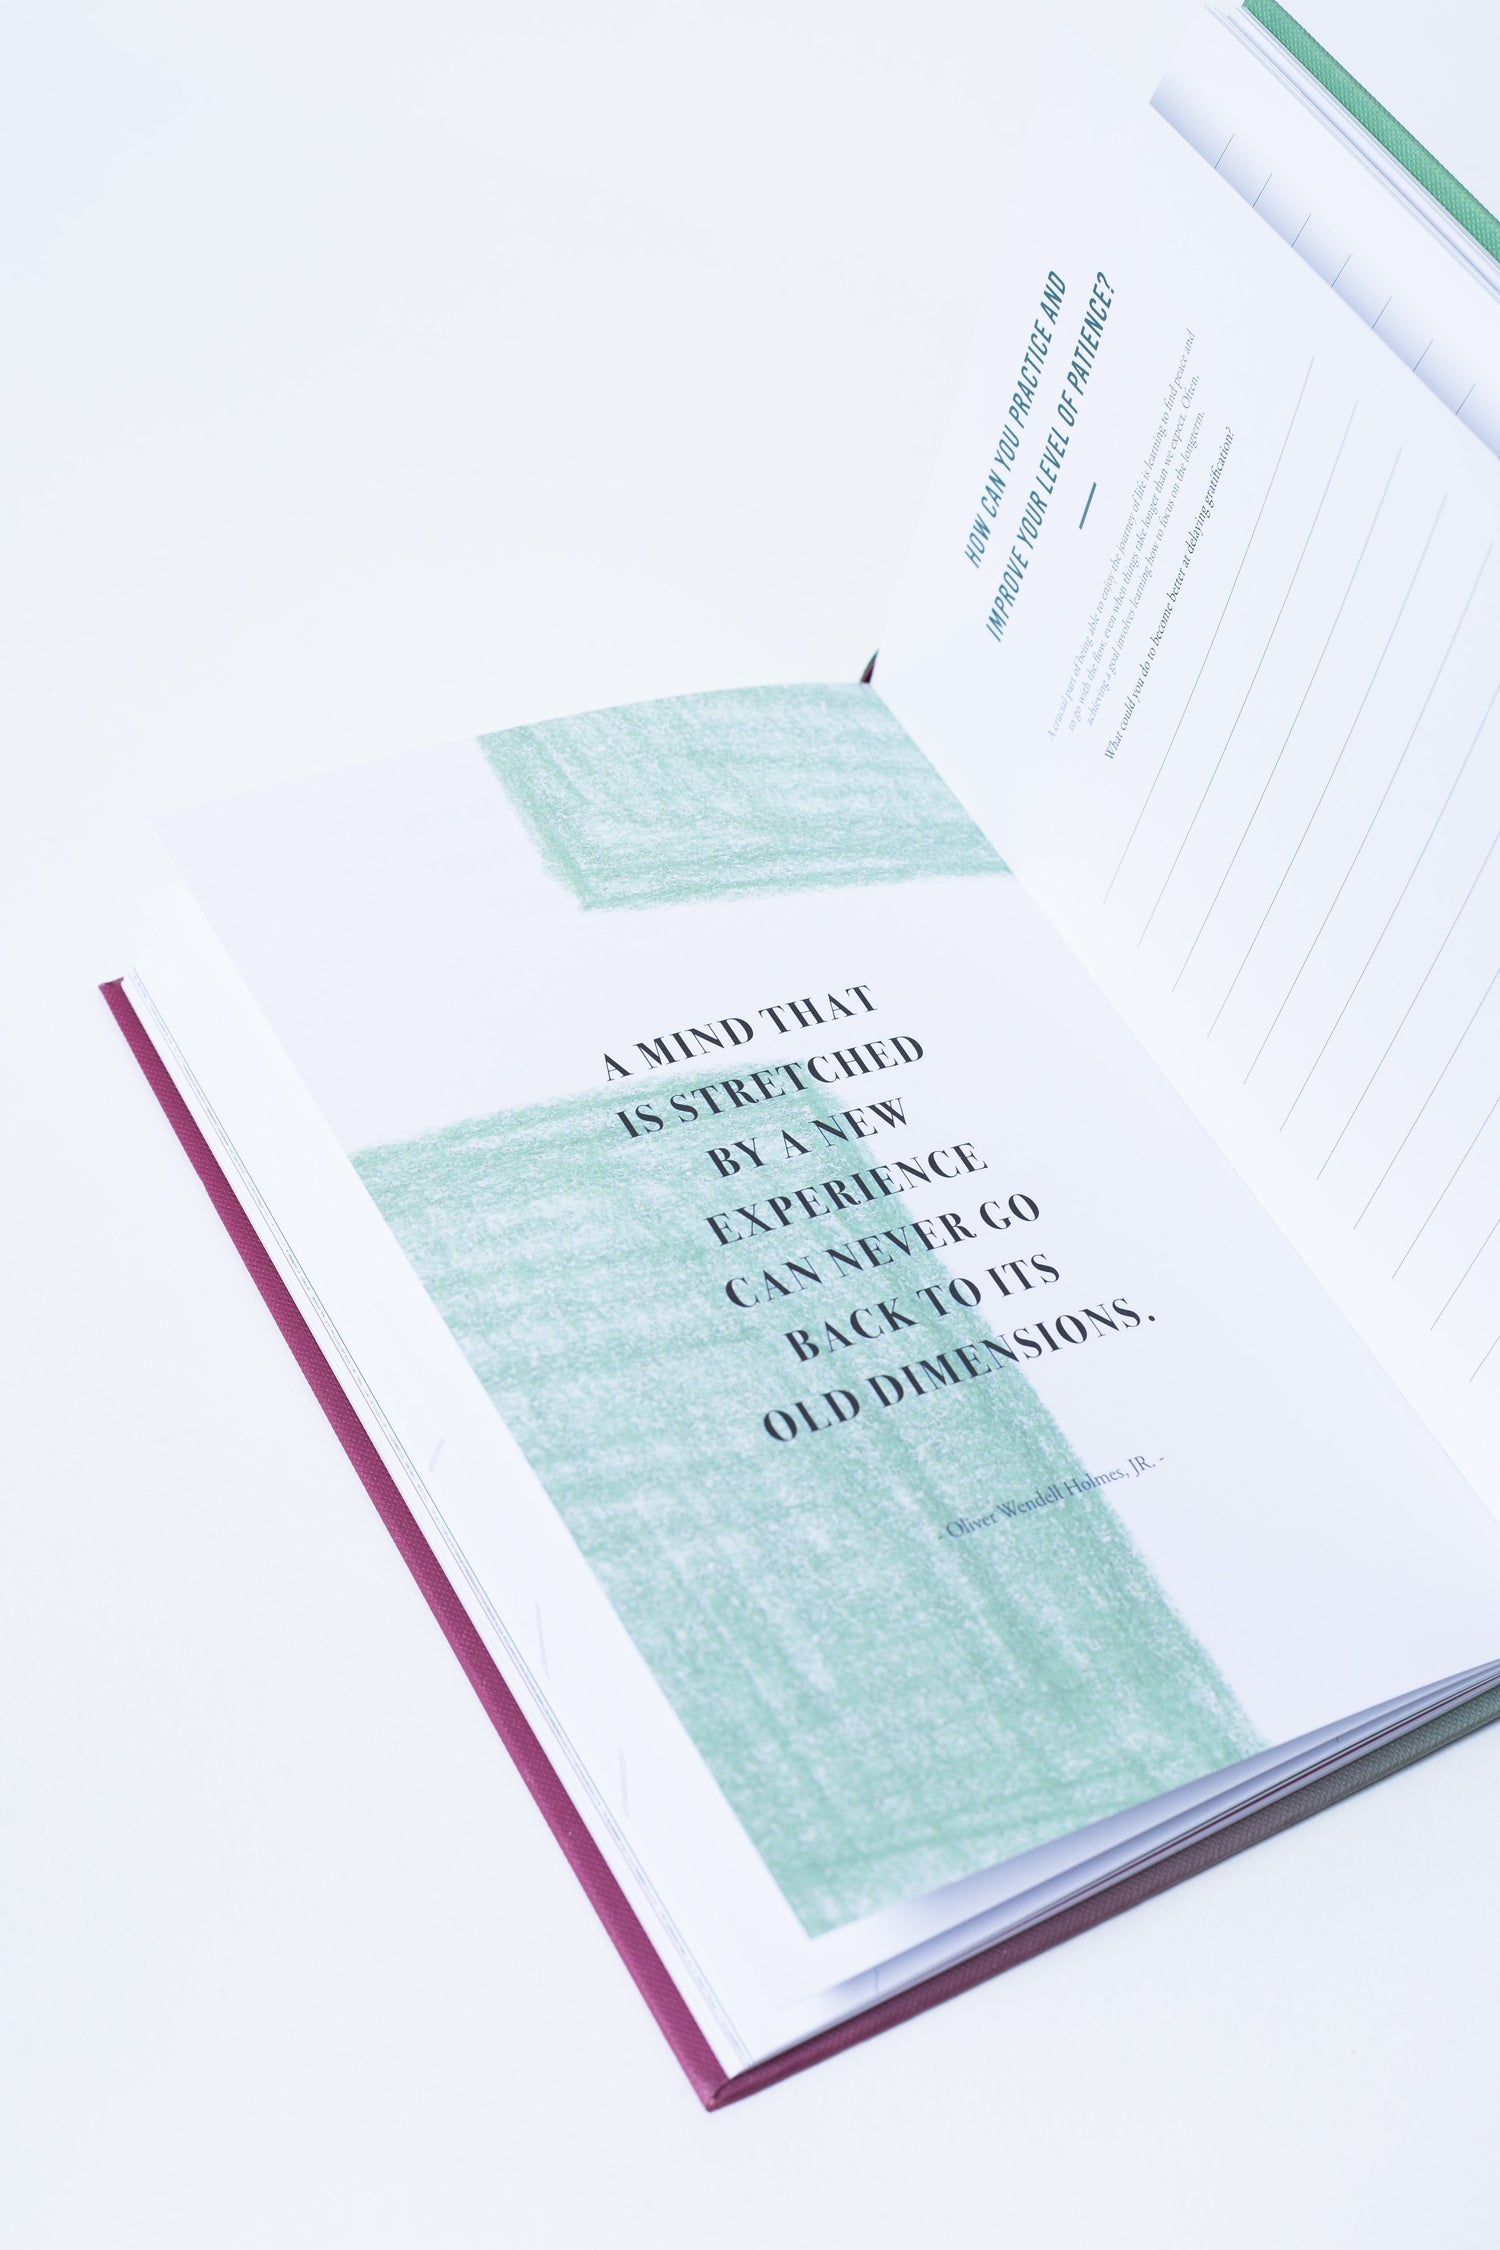 A MIND THAT
IS STRETCHED
BY A NEW
EXPERIENCE
CAN NEVER GO
BACK TO ITS
OLD DIMENSIONS.
- Oliver Wendell Holmes, JR. -
HOW CAN YOU PRACTICE AND
IMPROVE YOUR LEVEL OF PATIENCE?
A crucial part of being able to enjoy the journey of life is learning to find peace and
to go with the flow, even when things take longer than we expect. Often,
achieving a goal involves learning how to focus on the longterm.
What could you do to become better at delaying gratification?